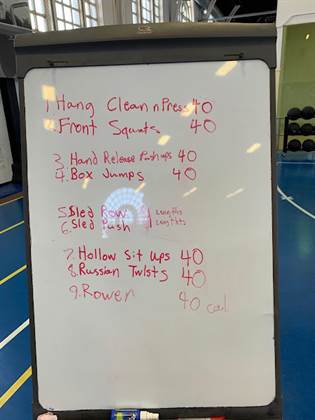 1. Hang Clean n Press 40
2. Front Squats 40
3. Hand Release Push ups 40
4. Box Jumps 40
5. Sled Row 4 Lengths
6. Sled Push 4 Lengths
7. Hollow Sit ups 40
8. Russian Twists 40
9. Rower 40 cal